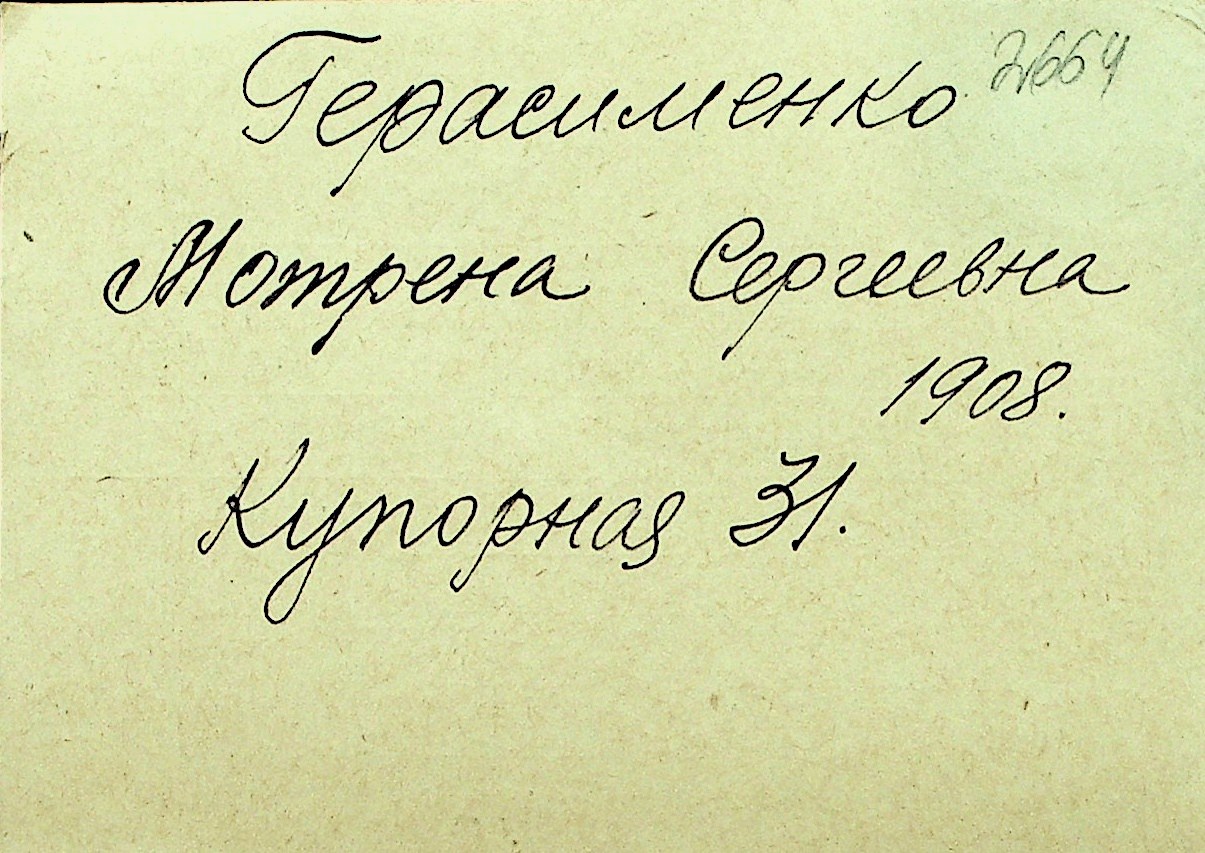 Герасименко 2664
Мотрена Сергеевна
1908.
Купорная 31.